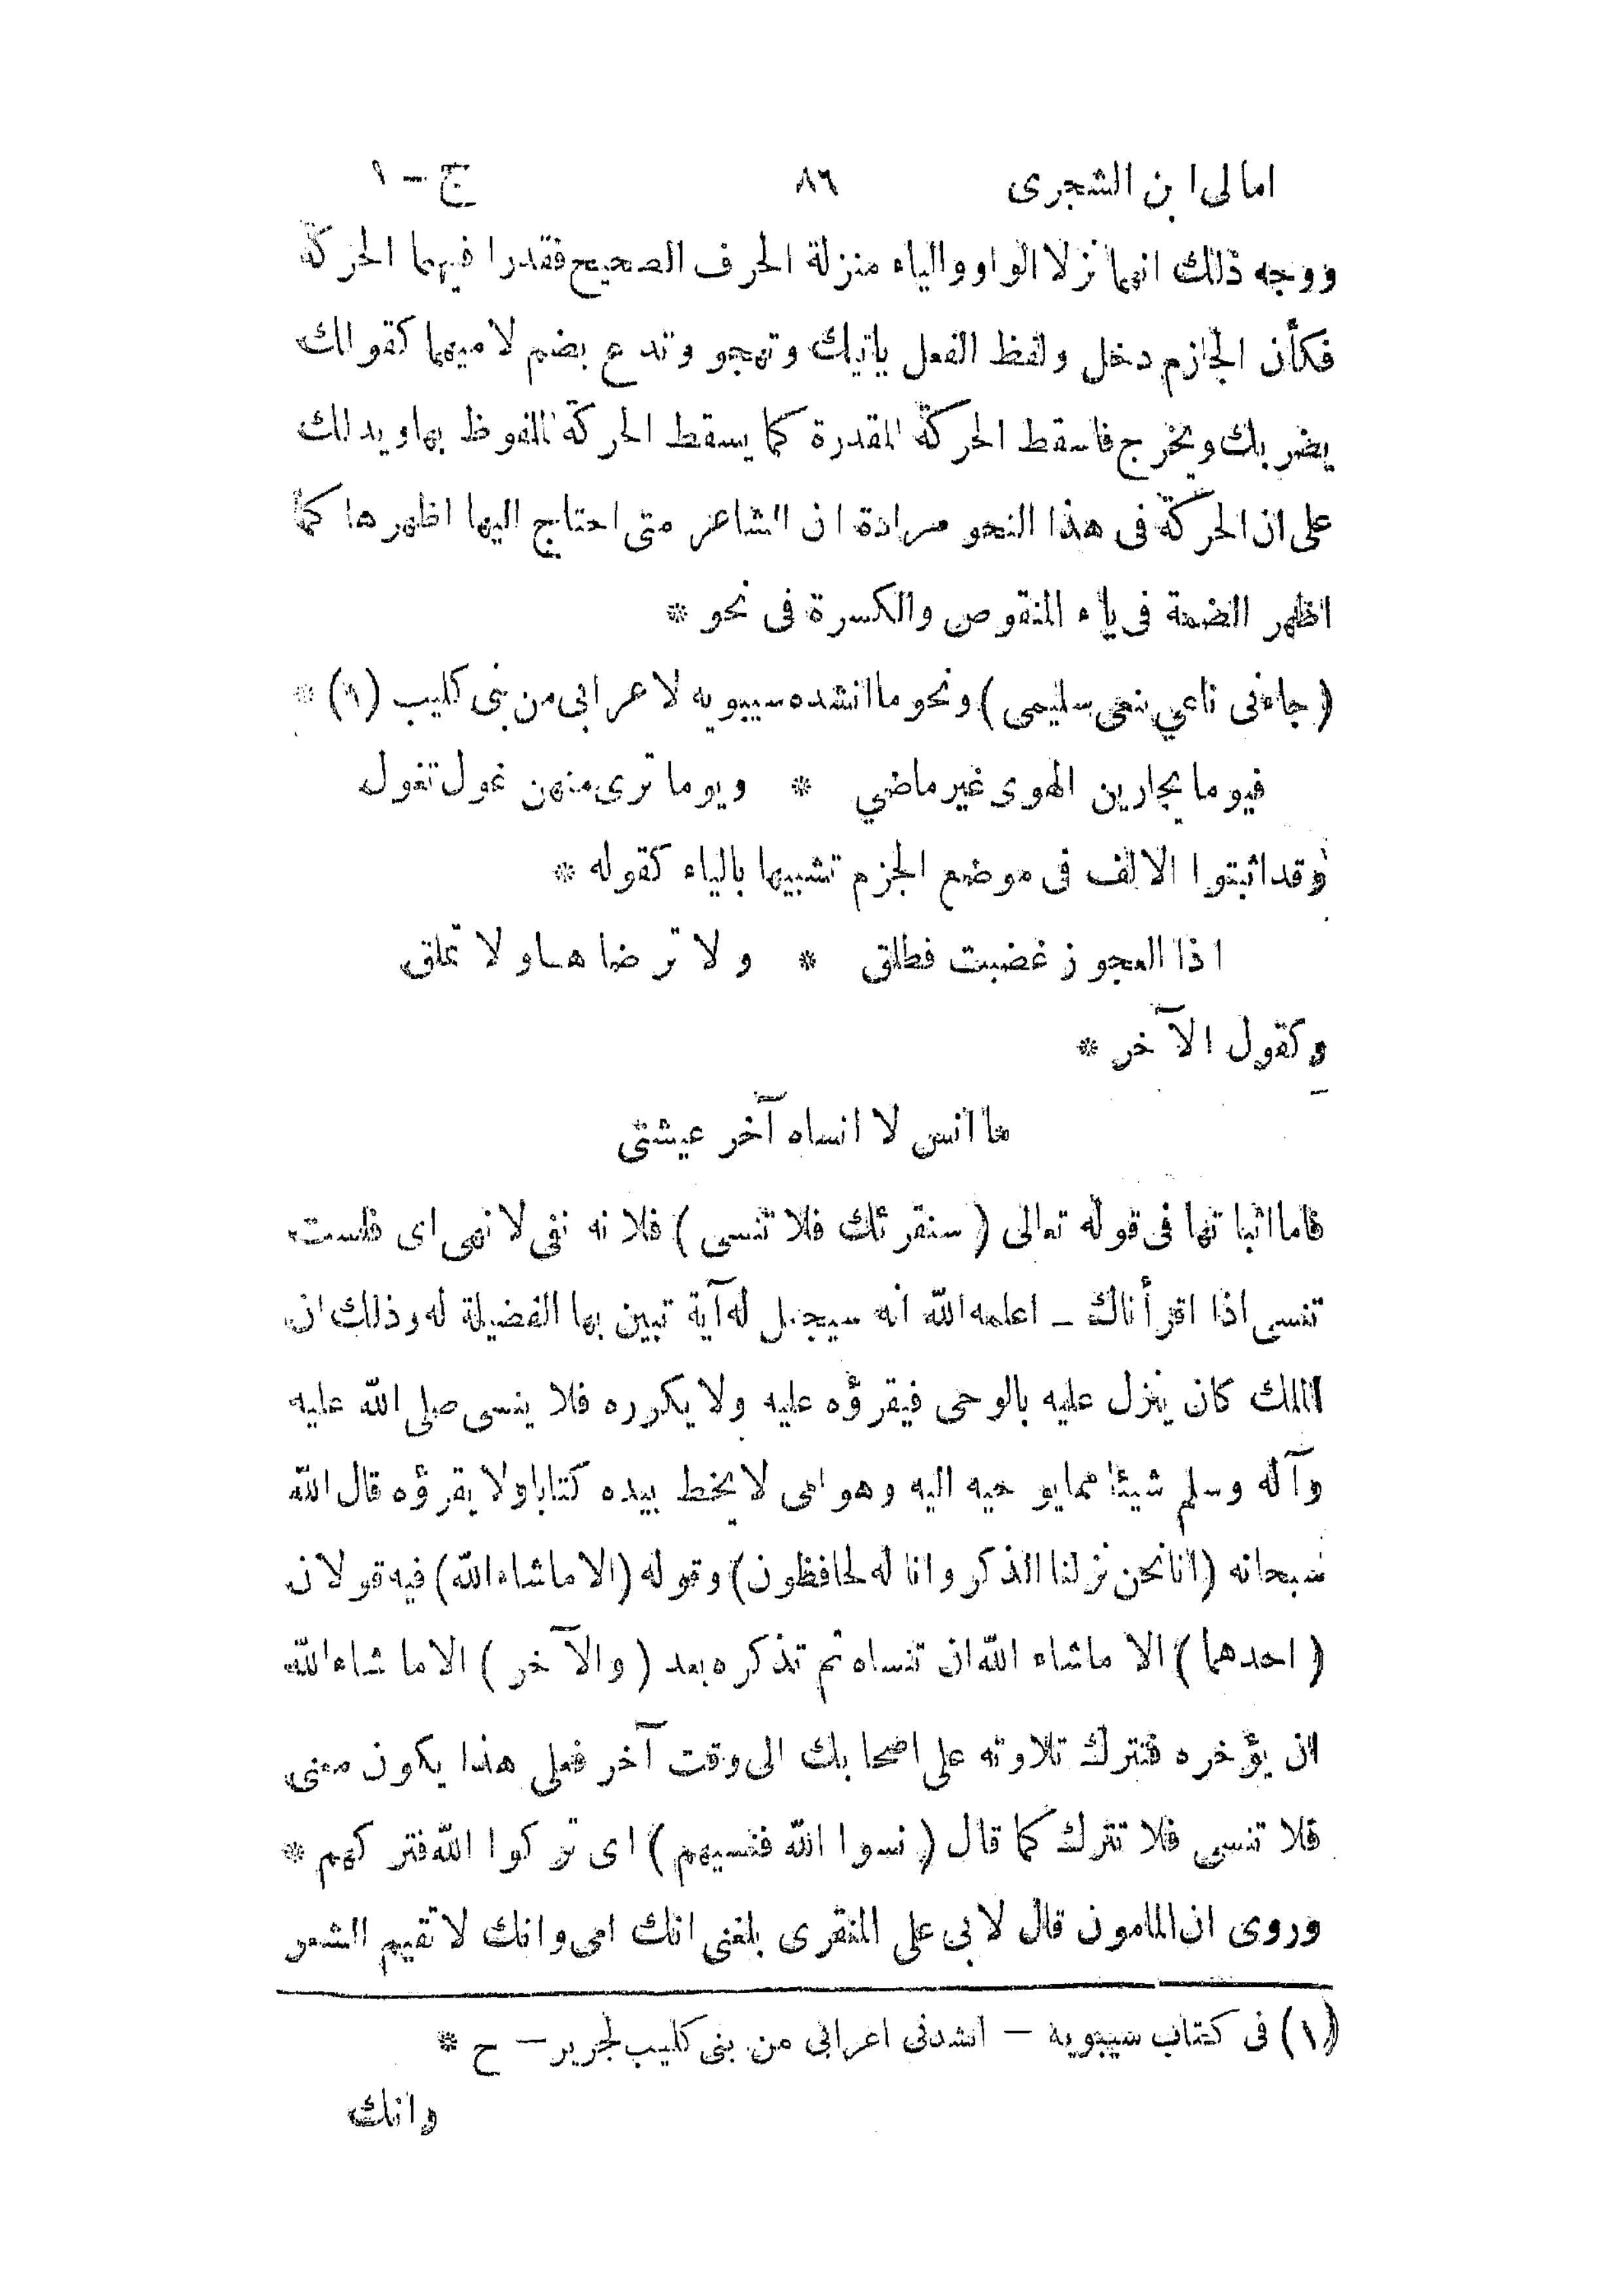 امالى ابن الشجرى ٨٦ ج – ١
ووجه ذلك انهما نزلا الواو والياء منزلة الحرف الصحيح فقدرا فيهما الحركة
فكأن الجازم دخل ولفظ الفعل ياتيك وتهجو وتدع بضم لاميهما كقولك
يضربك ويخرج فاسقط الحركة المقدرة كما يسقط الحركة الملفوظ بها ويدلك
على ان الحركة فى هذا النحو مرادة ان الشاعر متى احتاج اليها اظهرها كما
اظهر الضمة فى ياء المنقوص والكسرة فى نحو *
(جاءنى ناعي نعى سليمى) ونحو ما انشده سيبويه لاعرابى من بنى كليب (١) *
فيوما يجارين الهوى غير ماضي * ويوما ترى منهن غول تغول
وقد اثبتوا الالف فى موضع الجزم تشبيها بالياء كقوله *
اذا العجوز غضبت فطلق * ولا ترضاها ولا تملق
وكقول الآخر *
ما انس لا انساه آخر عيشتى
فاما اثباتها فى قوله تعالى (سنقرئك فلا تنسى) فلانه نفى لا نهى اى فلست
تنسى اذا اقرأناك – اعلمه الله انه سيجعل له آية تبين بها الفضيلة له وذلك ان
الملك كان ينزل عليه بالوحى فيقرؤه عليه ولا يكرره فلا ينسى صلى الله عليه
وآله وسلم شيئا مما يوحيه اليه وهو امى لا يخط بيده كتابا ولا يقرؤه قال الله
سبحانه (انا نحن نزلنا الذكر وانا له لحافظون) وقوله (الا ما شاء الله) فيه قولان
(احدهما) الا ما شاء الله ان تنساه ثم تذكره بعد (والآخر) الا ما شاء الله
ان يؤخره فتترك تلاوته على اصحابك الى وقت آخر فعلى هذا يكون معنى
فلا تنسى فلا تترك كما قال (نسوا الله فنسيهم) اى تركوا الله فتركهم *
وروى ان المامون قال لابى على المنقرى بلغنى انك امى وانك لا تقيم الشعر
(١) فى كتاب سيبويه – انشدنى اعرابى من بنى كليب لجرير – ح *
وانك